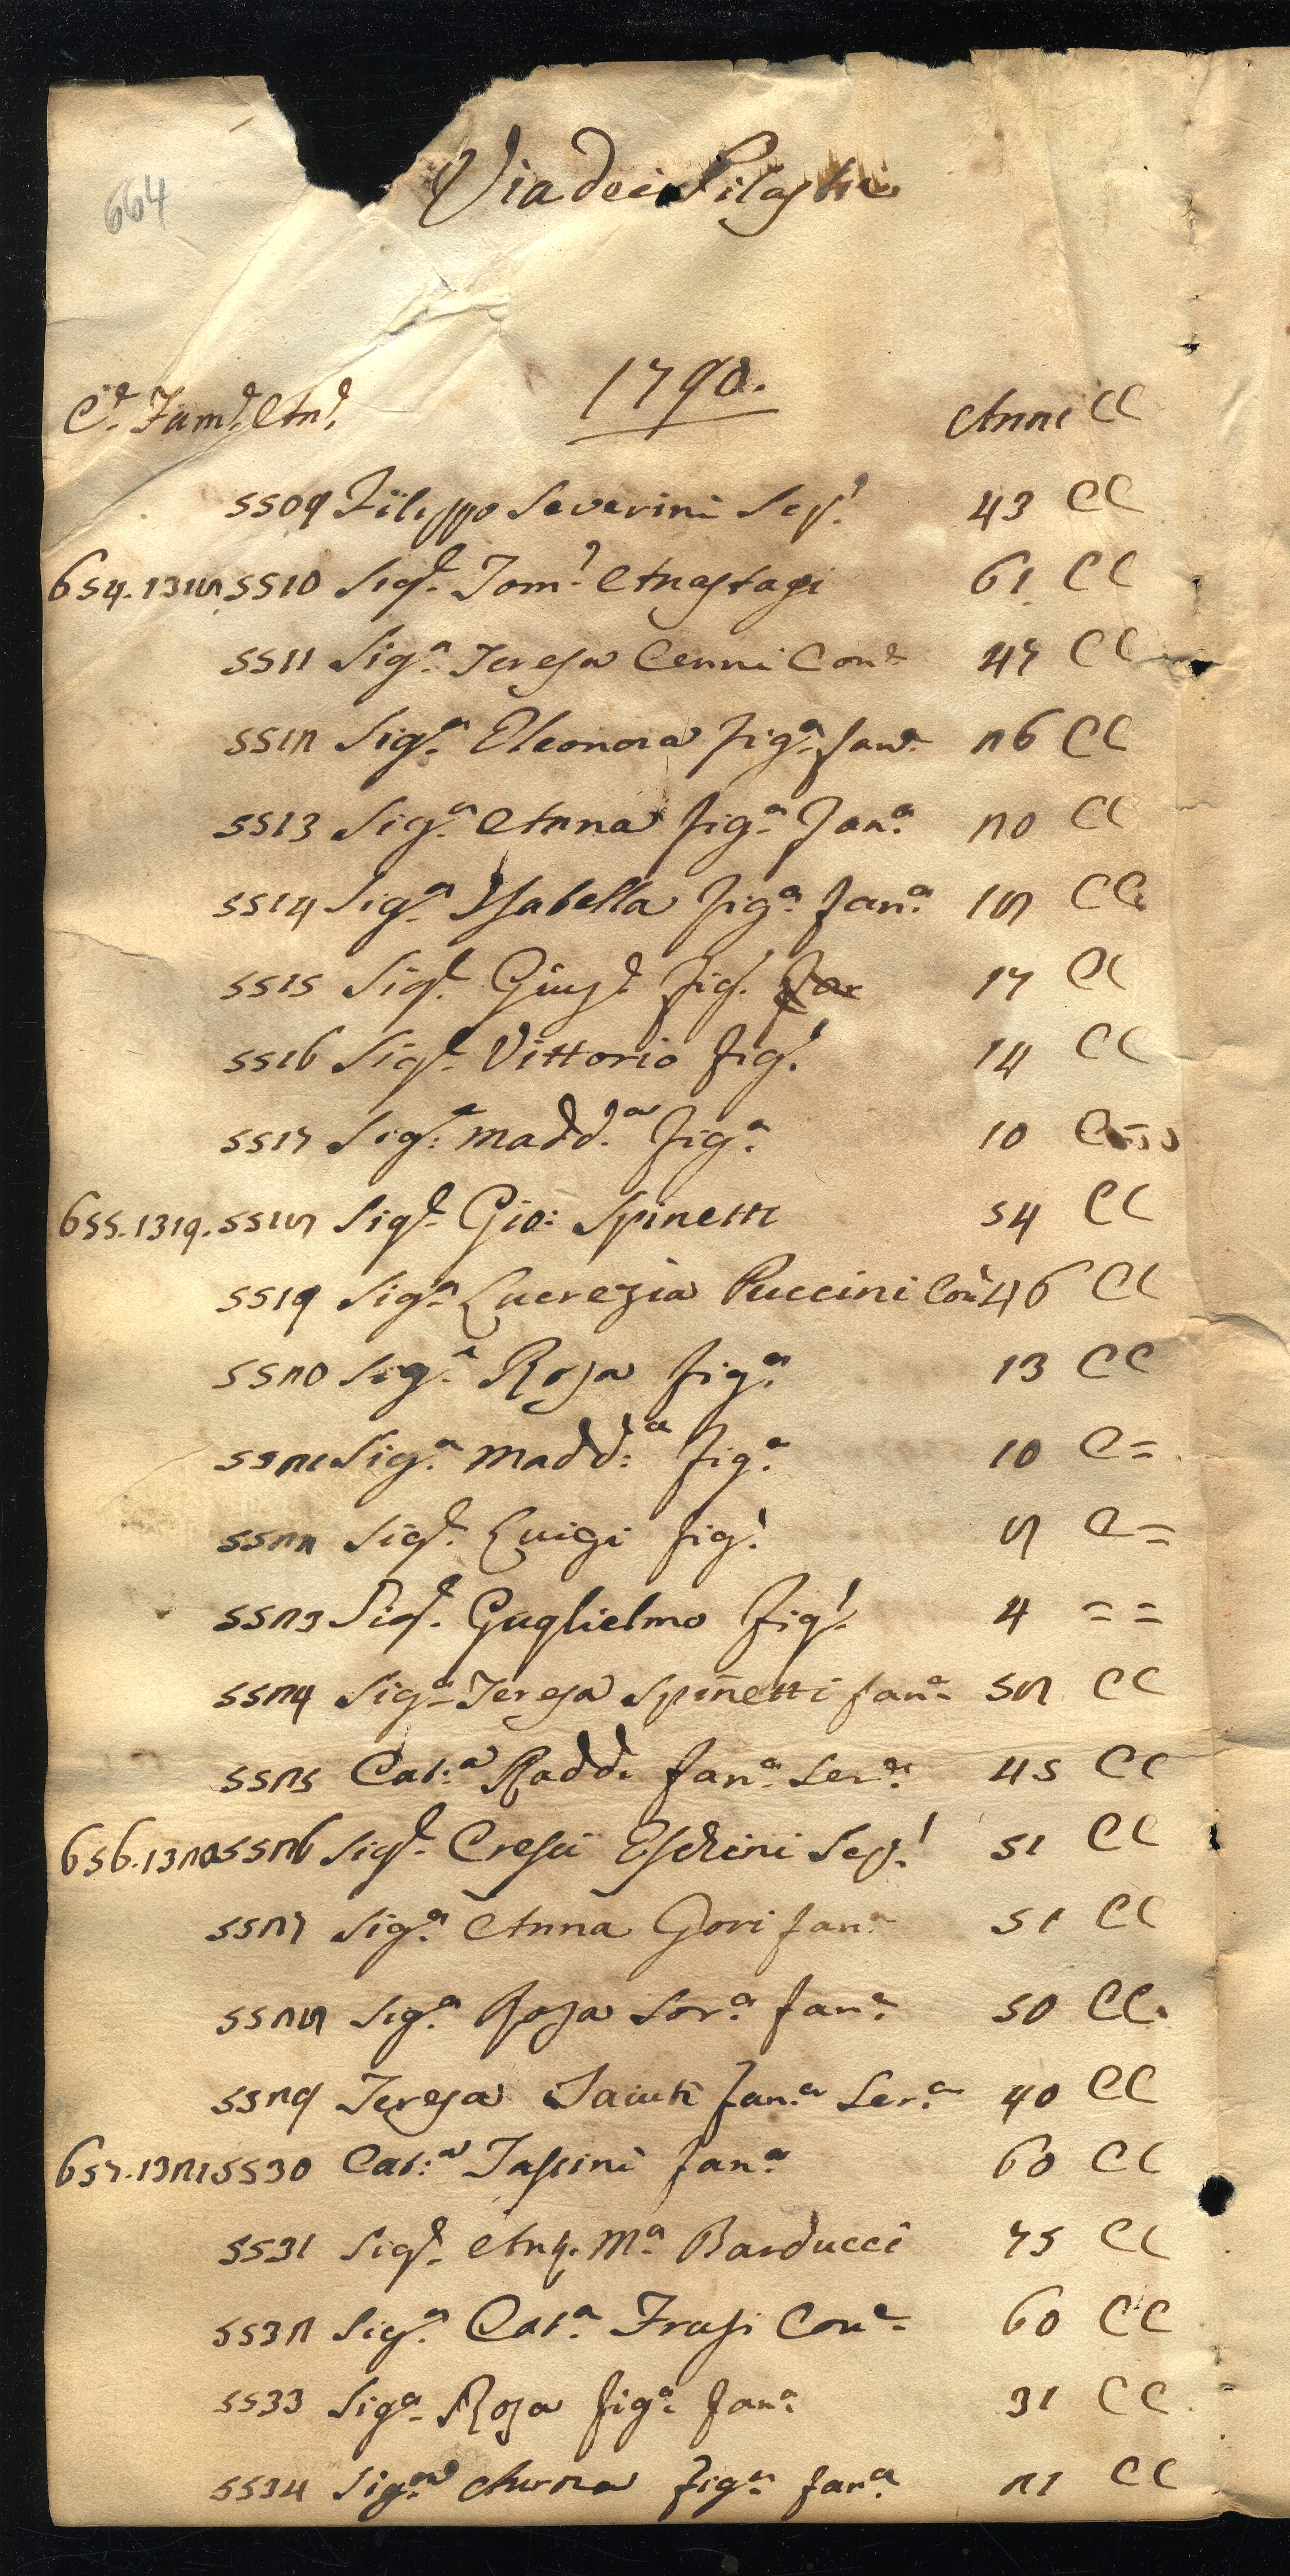 664
Via dei Pilastri
1790.
C.e Fam.e An.e Anni CC
5509 Filippo Severini Sep.l 43 CC
654. 1318 5510 Sig.e Tom.o Anastagi 61 CC
5511 Sig.a Teresa Cenni Con.e 47 CC
5512 Sig.a Eleonora fig.a fan.a 26 CC
5513 Sig.a Anna fig.a fan.a 20 CC
5514 Sig.a Isabella fig.a fan.a 18 CC
5515 Sig.e Gius.e fig.l 17 CC
5516 Sig.e Vittorio fig.l 14 CC
5517 Sig.a Madd.a fig.a 10 C
655. 1319. 5518 Sig.e Gio: Spinetti 54 CC
5519 Sig.a Lucrezia Puccini Con.e 46 CC
5520 Sig.a Rosa fig.a 13 CC
5521 Sig.a Madd.a fig.a 10 C=
5522 Sig.e Luigi fig.l 8 C=
5523 Sig.e Guglielmo fig.l 4 = =
5524 Sig.a Teresa Spinetti fan.a 58 CC
5525 Cat.a Radd. fan.a Ser.a 45 CC
656. 1320 5526 Sig.e Cresci Eschini Sep.l 51 CC
5527 Sig.a Anna Gori fan.a 51 CC
5528 Sig.a Rosa Sor.a fan.a 50 CC
5529 Teresa fan.a Ser.a 40 CC
657. 1321 5530 Cat.a Tassini fan.a 60 CC
5531 Sig.e Ant. M.a Barducci 75 CC
5532 Sig.a Cat.a Frasi Con.e 60 CC
5533 Sig.a Rosa fig.a fan.a 31 CC
5534 Sig.a Anna fig.a fan.a 21 CC